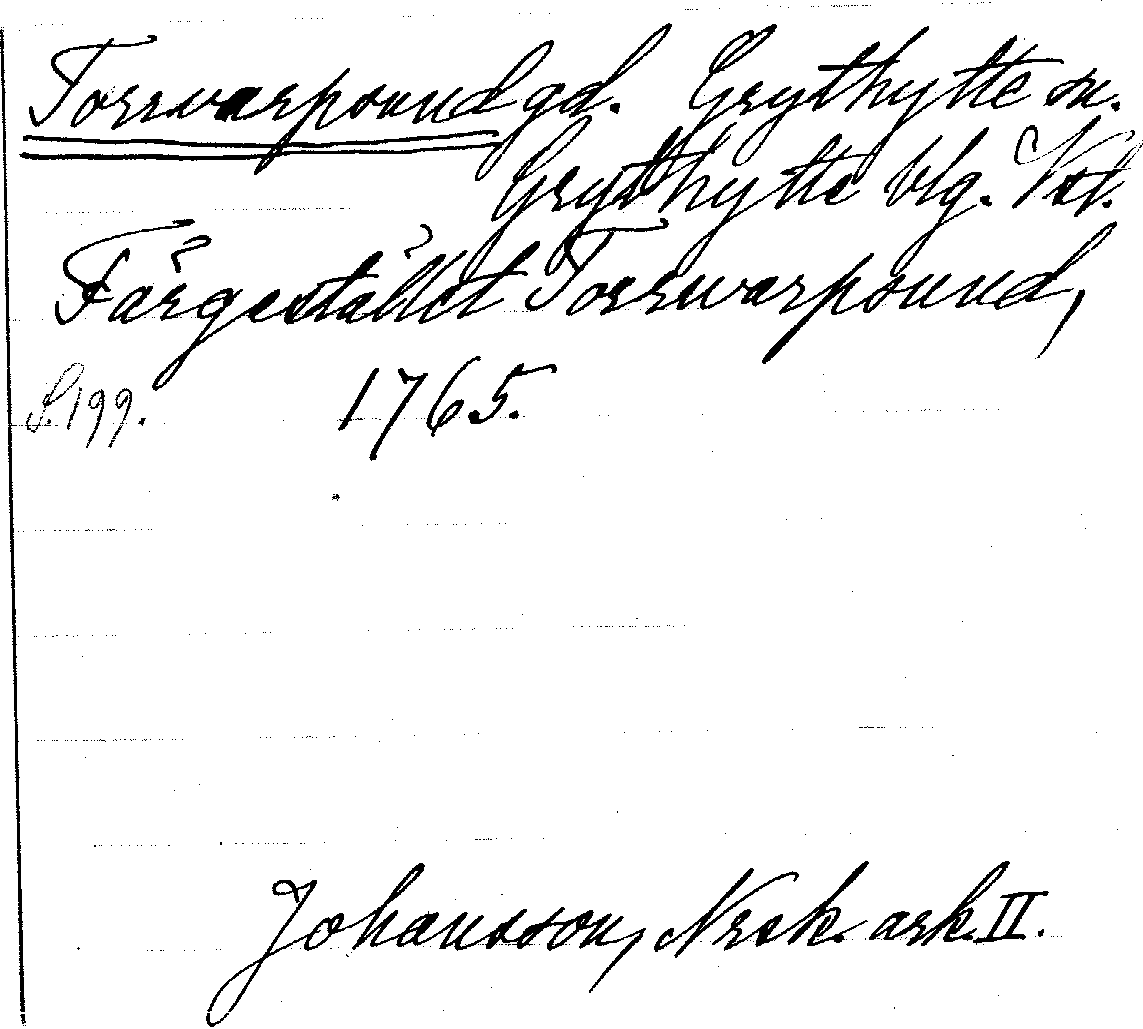 Torrvarpsund gd. Grythytte sn.
Grythytte blg. Vstl.
Färgestället Torrwarpsund,
S. 199. 1765.
Johansson, Nrck. ark. II.